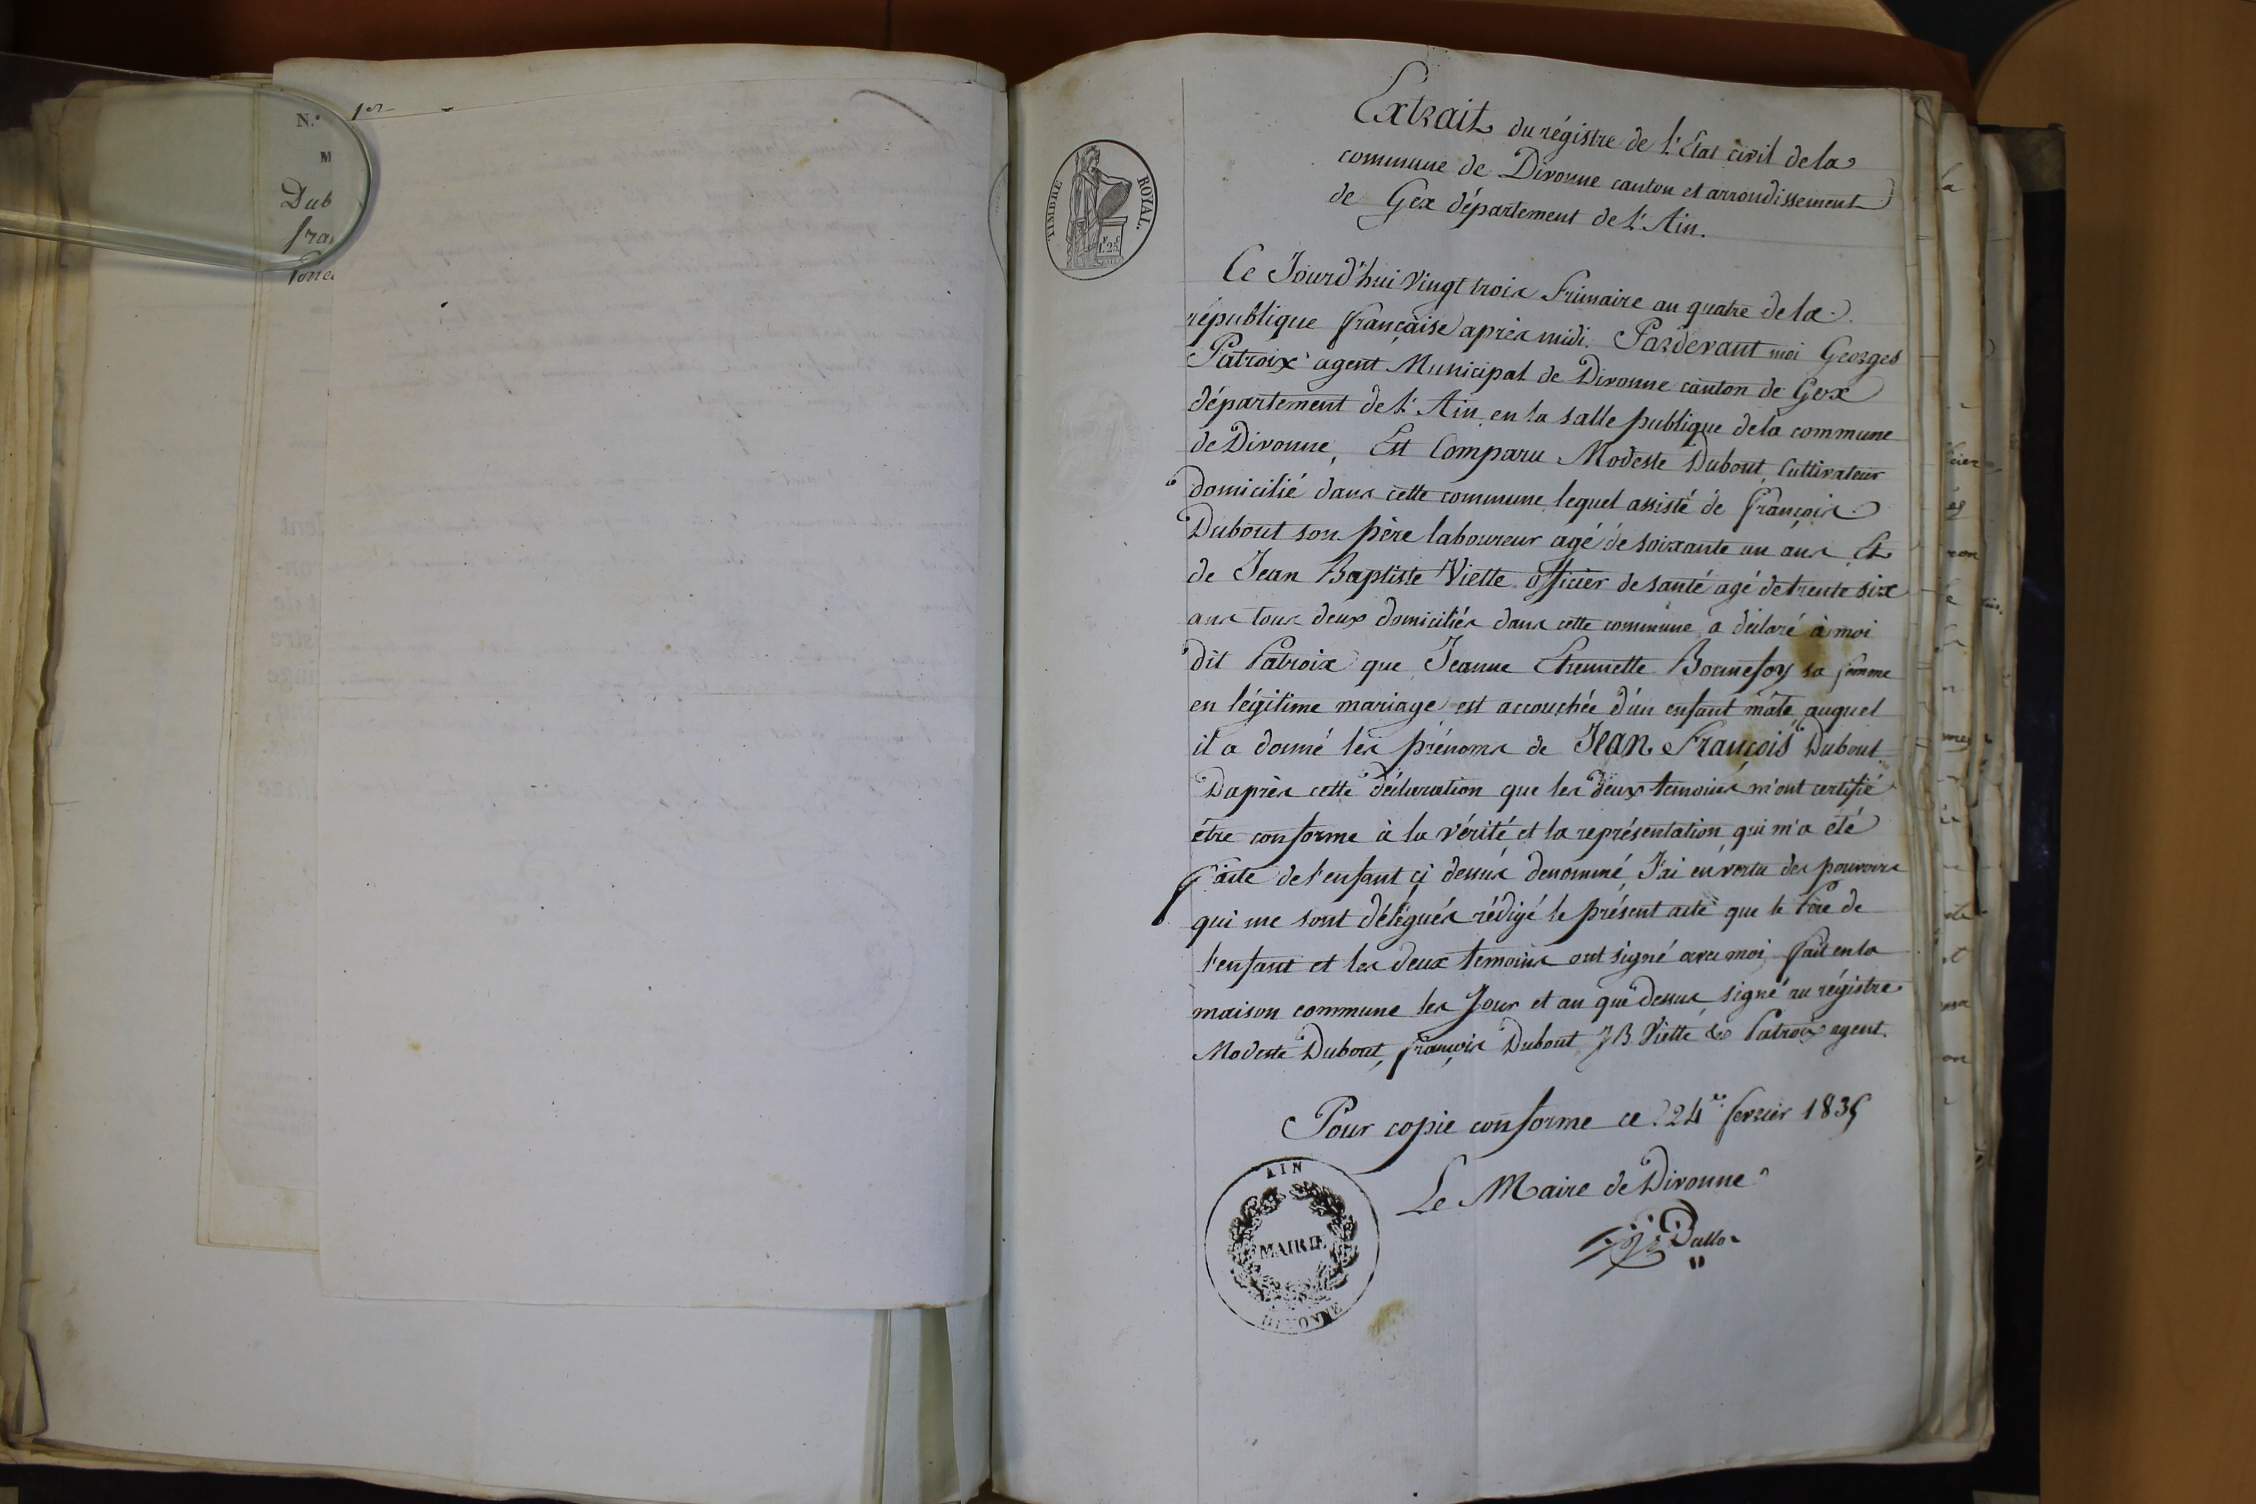 N.°
1er
M
Dub
fra
TIMBRE ROYAL.
1.F 25.C
Extrait du régistre de l'Etat civil de la
commune de Divonne canton et arrondissement
de Gex département de l'Ain.
Ce Jourd'hui vingt trois frimaire an quatre de la
république française après midi. Pardevant moi Georges
Patroix agent Municipal de Divonne canton de Gex
département de l'Ain, en la salle publique de la commune
de Divonne, Est Comparu Modeste Dubout, Cultivateur
domicilié dans cette commune, lequel assisté de François
Dubout son père laboureur agé de soixante un ans, Et
de Jean Baptiste Viette officier de santé agé de trente six
ans tous deux domiciliés dans cette commune, a déclaré à moi
dit Patroix que Jeanne Etiennette Bonnefoy sa femme
en légitime mariage est accouchée d'un enfant mâle auquel
il a donné les prénoms de Jean François Dubout.
Daprès cette déclaration que les deux temoins m'ont certifié
être conforme à la vérité, et la représentation qui m'a été
faite de l'enfant ci dessus denommé, J'ai en vertu des pouvoirs
qui me sont délégués rédigé le présent acte que le Père de
l'enfant et les deux temoins ont signé avec moi, fait en la
maison commune les Jour et an que dessus, signé au régistre
Modeste Dubout, françois Dubout, J B. Viette & Patroix agent.
Pour copie conforme ce 24 fevrier 1835
Le Maire de Divonne
AIN
MAIRIE
DIVONNE